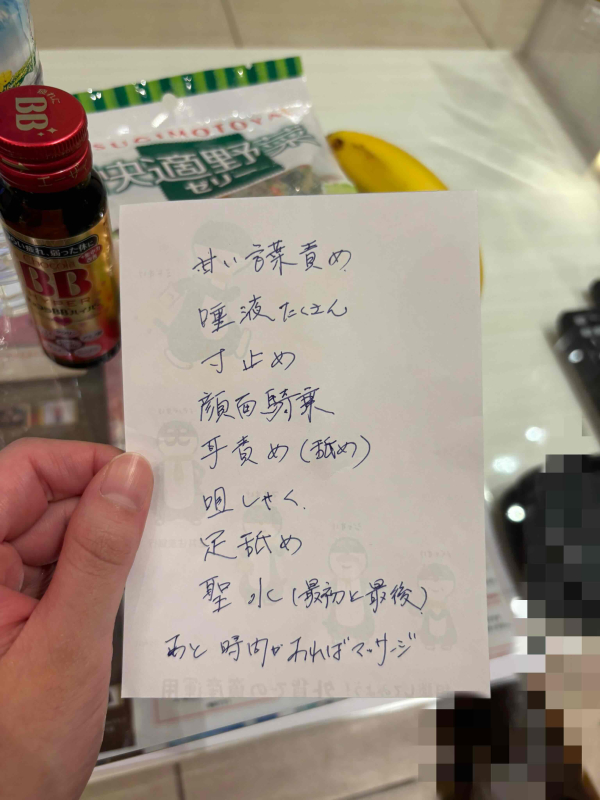 BB
SUGIMOTOYA
快適野菜
ゼリー
BB
甘い言葉責め
唾液たくさん
寸止め
顔面騎乗
耳責め(舐め)
咀しゃく
足舐め
聖水(最初と最後)
あと時間があればマッサージ